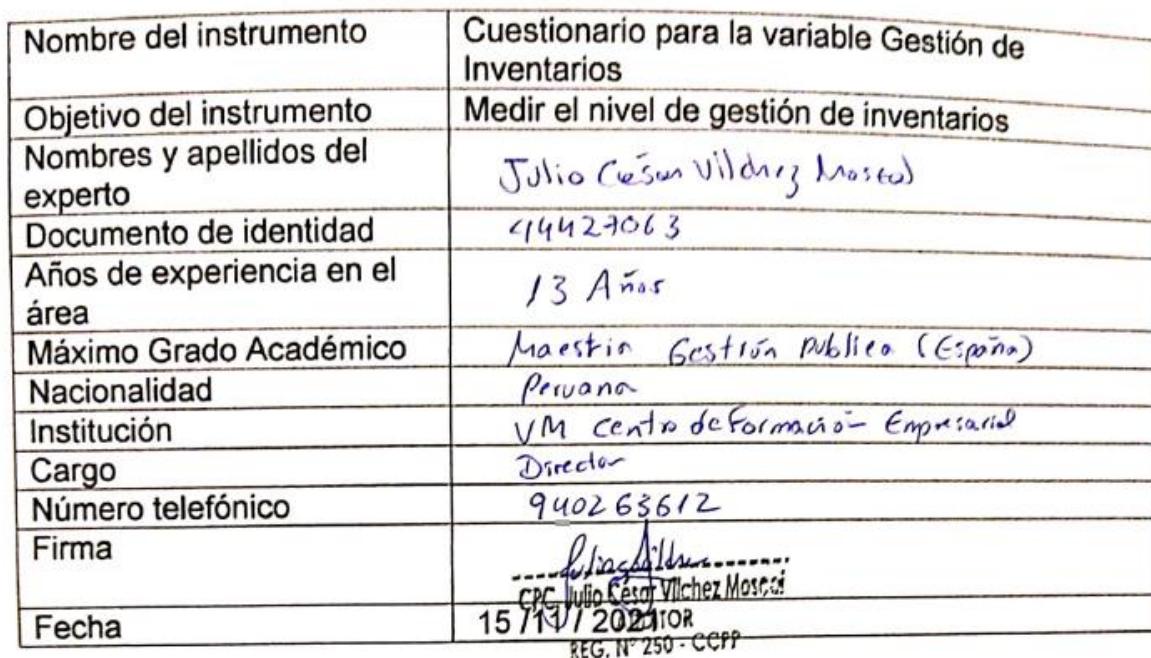 Nombre del instrumento
Cuestionario para la variable Gestión de
Inventarios
Objetivo del instrumento
Medir el nivel de gestión de inventarios
Nombres y apellidos del
experto
Julio César Vilchez
Documento de identidad
44427063
Años de experiencia en el
área
13 Años
Máximo Grado Académico
Maestria Gestión Publica (España)
Nacionalidad
Peruana
Institución
VM Centro de Formación Empresarial
Cargo
Director
Número telefónico
940263612
Firma
CPC. Julio César Vilchez Moscol
Fecha
15 /11 / 2021
REG. N° 250 - CCPP